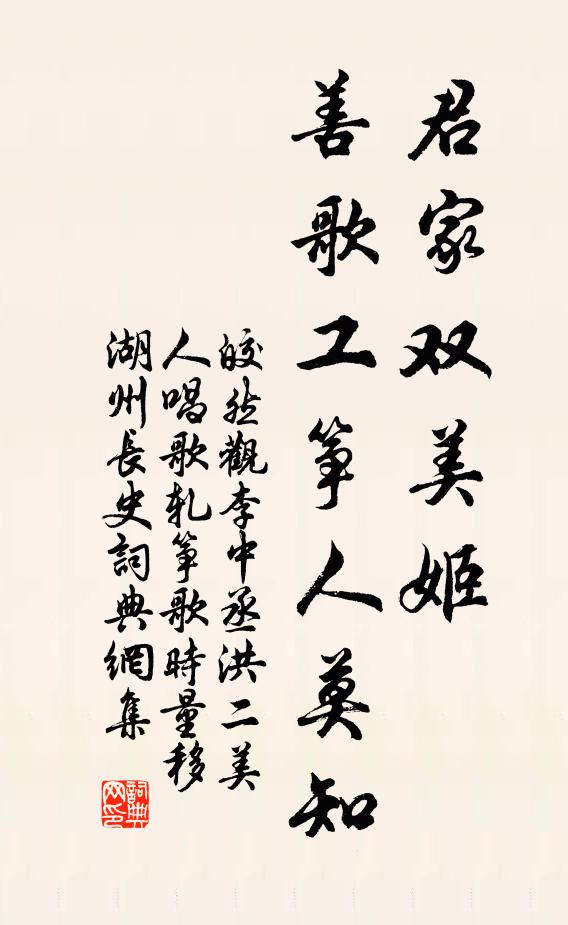 君家双美姬
善歌工筝人莫知
皎然觀李中丞洪二美
人唱歌軋筝歌時量移
湖州長史詞典網集
詞典网印